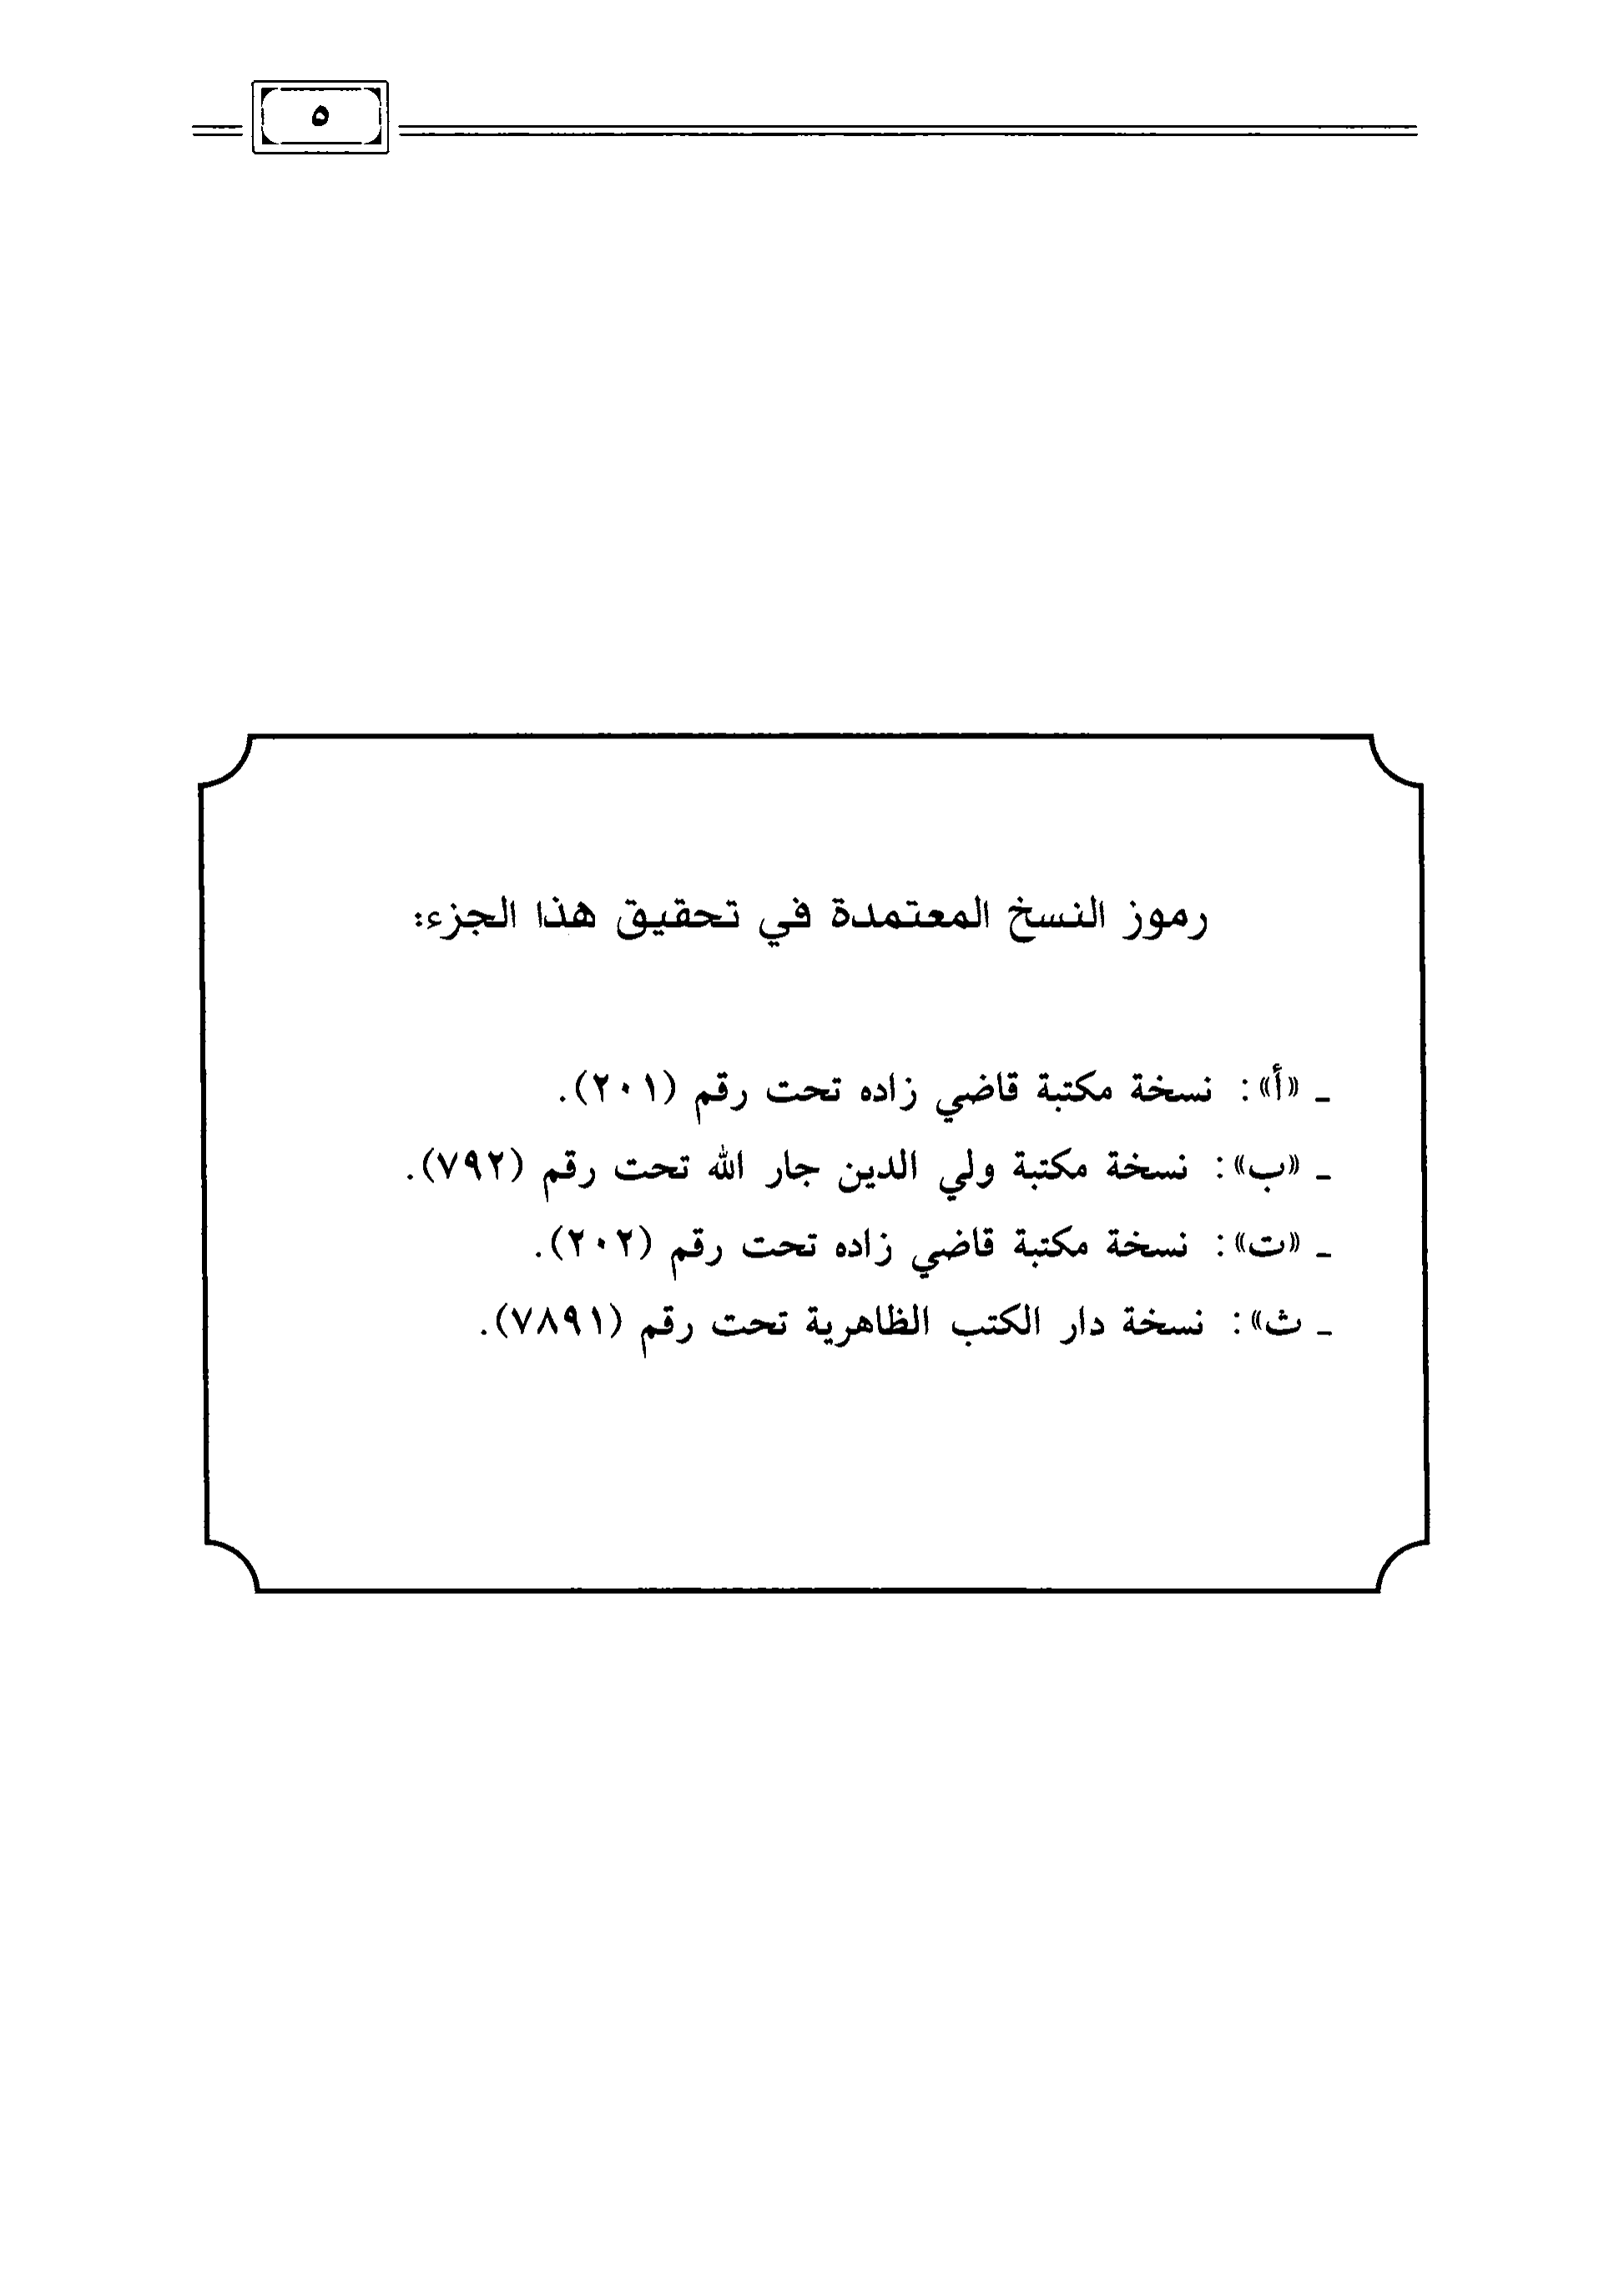 ٥
رموز النسخ المعتمدة في تحقيق هذا الجزء:
ـ «أ»: نسخة مكتبة قاضي زاده تحت رقم (٢٠١).
ـ «ب»: نسخة مكتبة ولي الدين جار الله تحت رقم (٧٩٢).
ـ «ت»: نسخة مكتبة قاضي زاده تحت رقم (٢٠٢).
ـ ث»: نسخة دار الكتب الظاهرية تحت رقم (٧٨٩١).